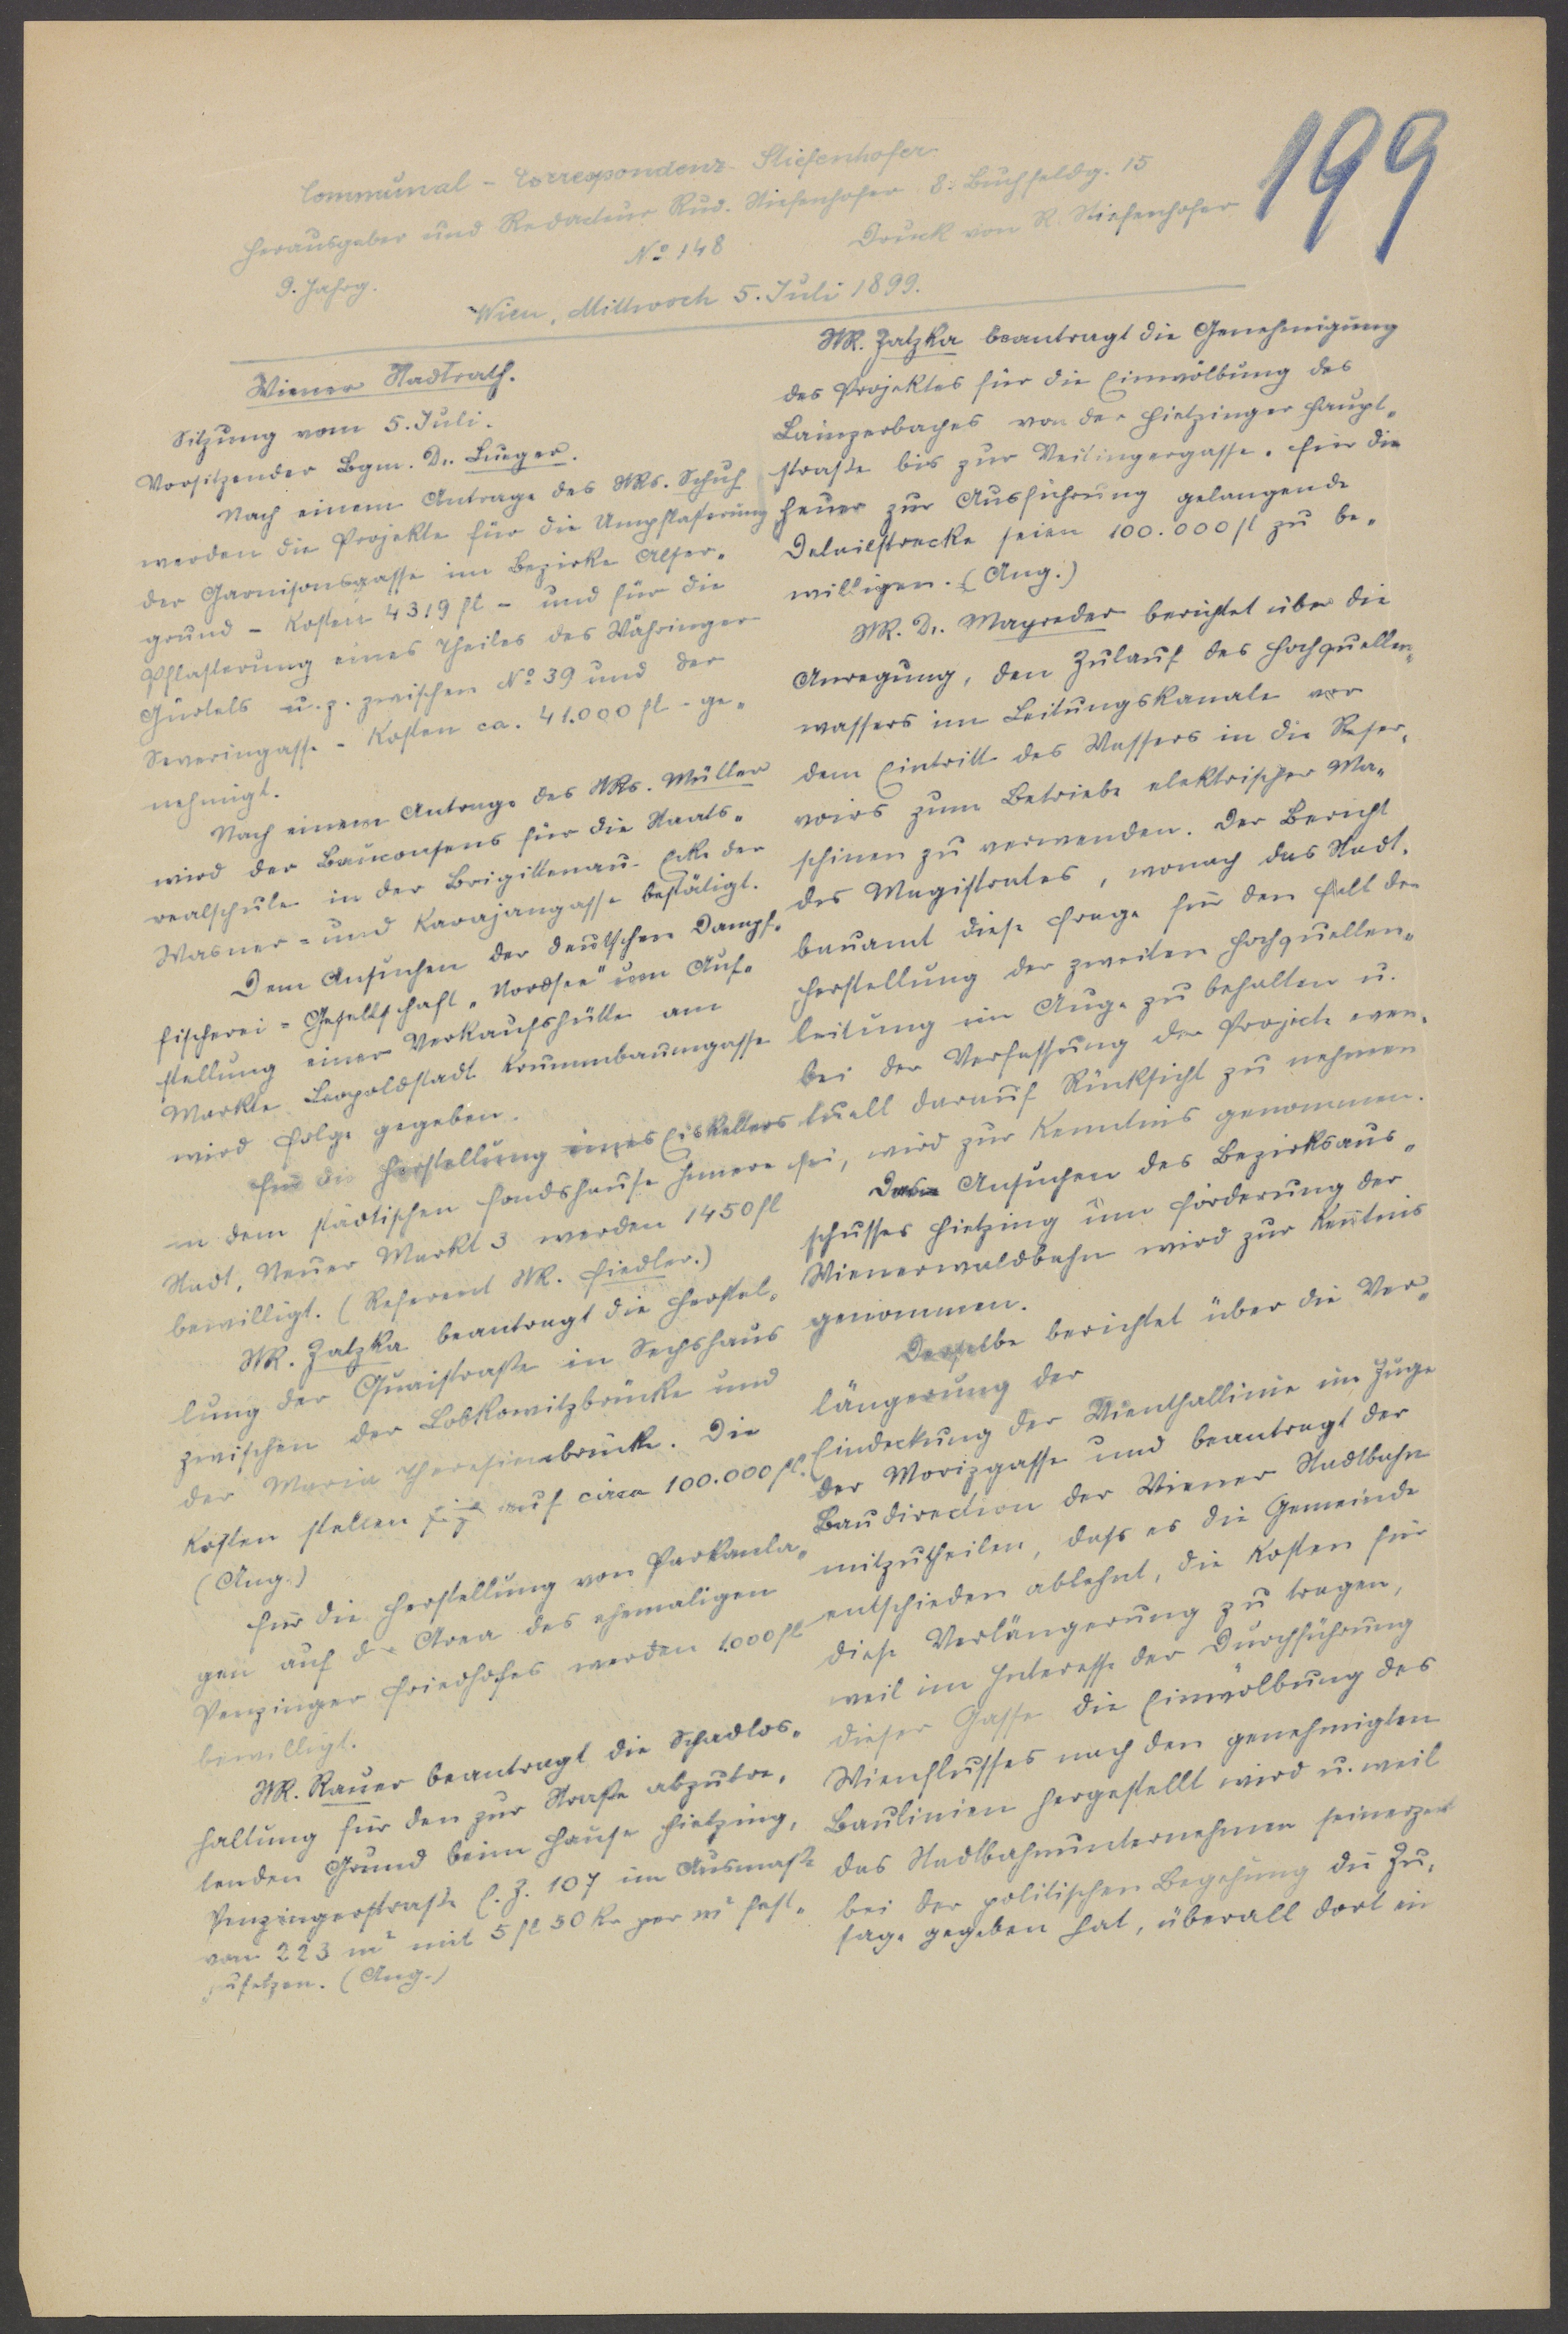 199
Communal-Correspondenz Stiefenhofer
Herausgeber und Redacteur Rud. Stiefenhofer 8. Buchfeldg. 15
9. Jahrg. No 148 Druck von R. Stiefenhofer
Wien, Mittwoch 5. Juli 1899.
Wiener Stadtrath.
Sitzung vom 5. Juli.
Vorsitzender Bgm. Dr. Lueger.
Nach einem Antrage des StRs. Schuh
werden die Projekte für die Umpflasterung
der Garnisonsgasse im Bezirke Alser-
grund - Kosten 4319 fl - und für die
Pflasterung eines Theiles des Währinger
Gürtels u. z. zwischen No 39 und der
Severingasse - Kosten ca. 41.000 fl - ge-
nehmigt.
Nach einem Antrage des StRs. Müller
wird der Bauconsens für die Staats-
realschule in der Brigittenau Ecke der
Wasner- und Karajangasse bestätigt.
Dem Ansuchen der deutschen Dampf-
fischerei-Gesellschaft „Nordsee" um Auf-
stellung einer Verkaufshütte am
Markte Leopoldstadt Krummbaumgasse
wird Folge gegeben.
Für die Herstellung eines Eiskellers
in dem städtischen Fondshause Innere
Stadt, Neuer Markt 3 werden 1450 fl
bewilligt. (Referent StR. Fiedler.)
StR. Zatzka beantragt die Herstel-
lung der Quaistraße in Sechshaus
zwischen der Lobkowitzbrücke und
der Maria Theresienbrücke. Die
Kosten stellen sich auf circa 100.000 fl.
(Ang.)
Für die Herstellung von Parkanla-
gen auf der Area des ehemaligen
Penzinger Friedhofes werden 1000 fl
bewilligt.
StR. Rauer beantragt die Schadlos-
haltung für den zur Straße abzutre-
tenden Grund beim Hause Hietzing,
Penzingerstraße C. Z. 107 im Ausmaße
von 223 m² mit 5 fl 50 kr per m² fest-
zusetzen. (Ang.)
StR. Zatzka beantragt die Genehmigung
des Projektes für die Einwölbung des
Lainzerbaches von der Hietzinger Haupt-
straße bis zur Veitingergasse. Für die
heuer zur Ausführung gelangende
Detailstrecke seien 100.000 fl zu be-
willigen. (Ang.)
StR. Dr. Mayreder berichtet über die
Anregung, den Zulauf des Hochquellen-
wassers im Leitungskanale vor
dem Eintritt des Wassers in die Reser-
voirs zum Betriebe elektrischer Ma-
schinen zu verwenden. Der Bericht
des Magistrates, wonach das Stadt-
bauamt diese Frage für den Fall der
Herstellung der zweiten Hochquellen-
leitung im Auge zu behalten u.
bei der Verfassung der Projecte even-
tuell darauf Rücksicht zu nehmen
sei, wird zur Kenntnis genommen.
Das Ansuchen des Bezirksaus-
schusses Hietzing um Förderung der
Wienerwaldbahn wird zur Kenntnis
genommen.
Derselbe berichtet über die Ver-
längerung der
Eindeckung der Wienthallinie im Zuge
der Morizgasse und beantragt der
Baudirection der Wiener Stadtbahn
mitzutheilen, daß es die Gemeinde
entschieden ablehnt, die Kosten für
diese Verlängerung zu tragen,
weil im Interesse der Durchführung
dieser Gasse die Einwölbung des
Wienflusses nach den genehmigten
Baulinien hergestellt wird u. weil
das Stadtbahnunternehmen seinerzeit
bei der politischen Begehung die Zu-
sage gegeben hat, überall dort ein